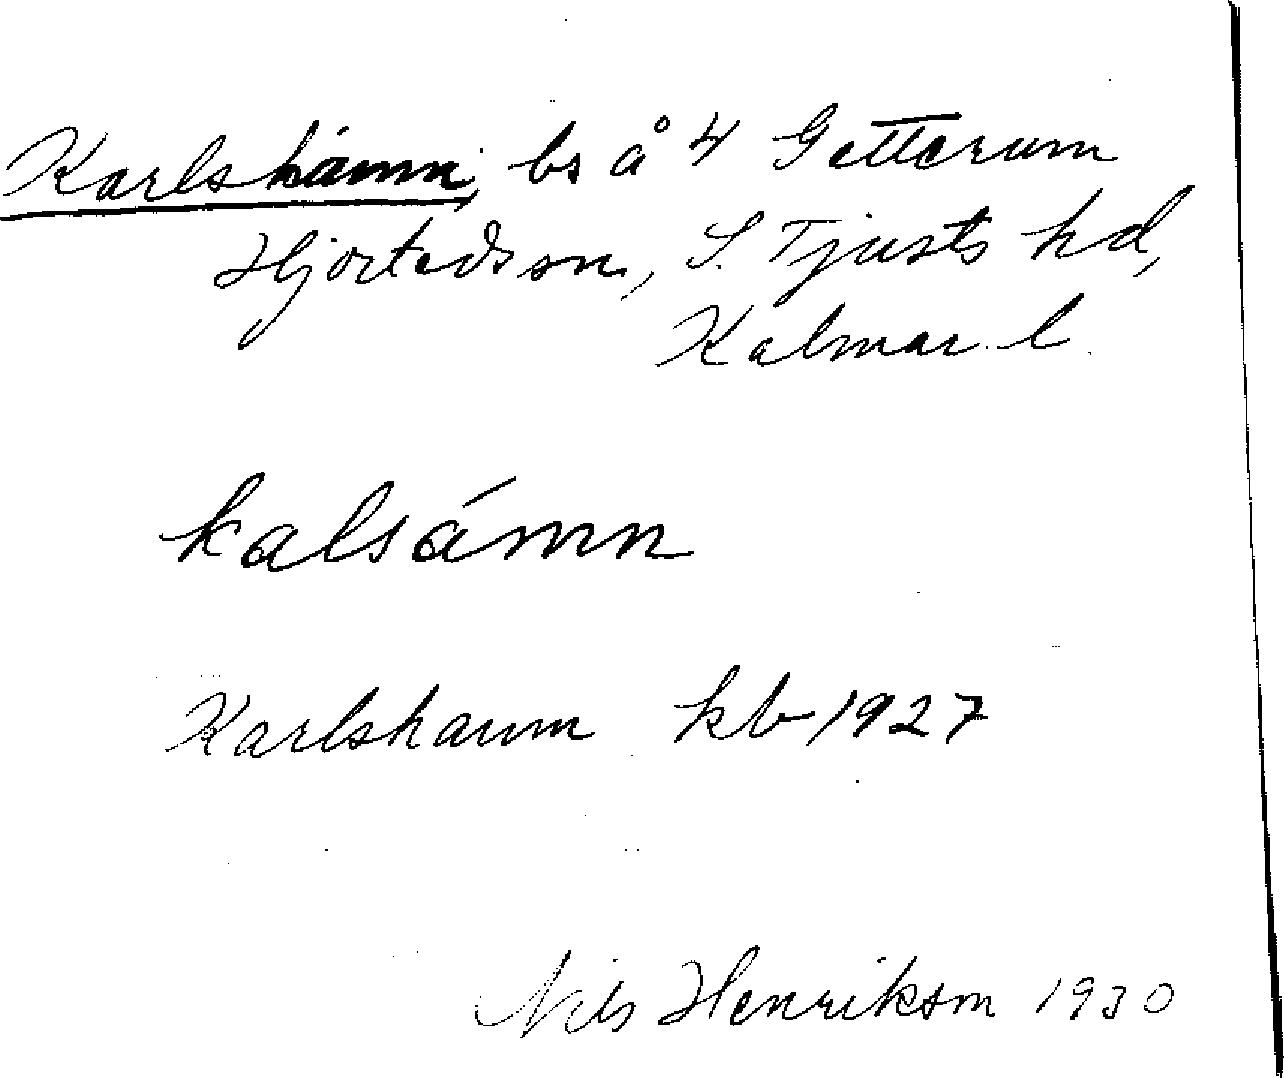 Karlshamn, bs å 4 Getterum
Hjorteds sn, S. Tjusts hd,
Kalmar l.
kalsámn
Karlshamn kb 1927
Nils Henrikson 1930